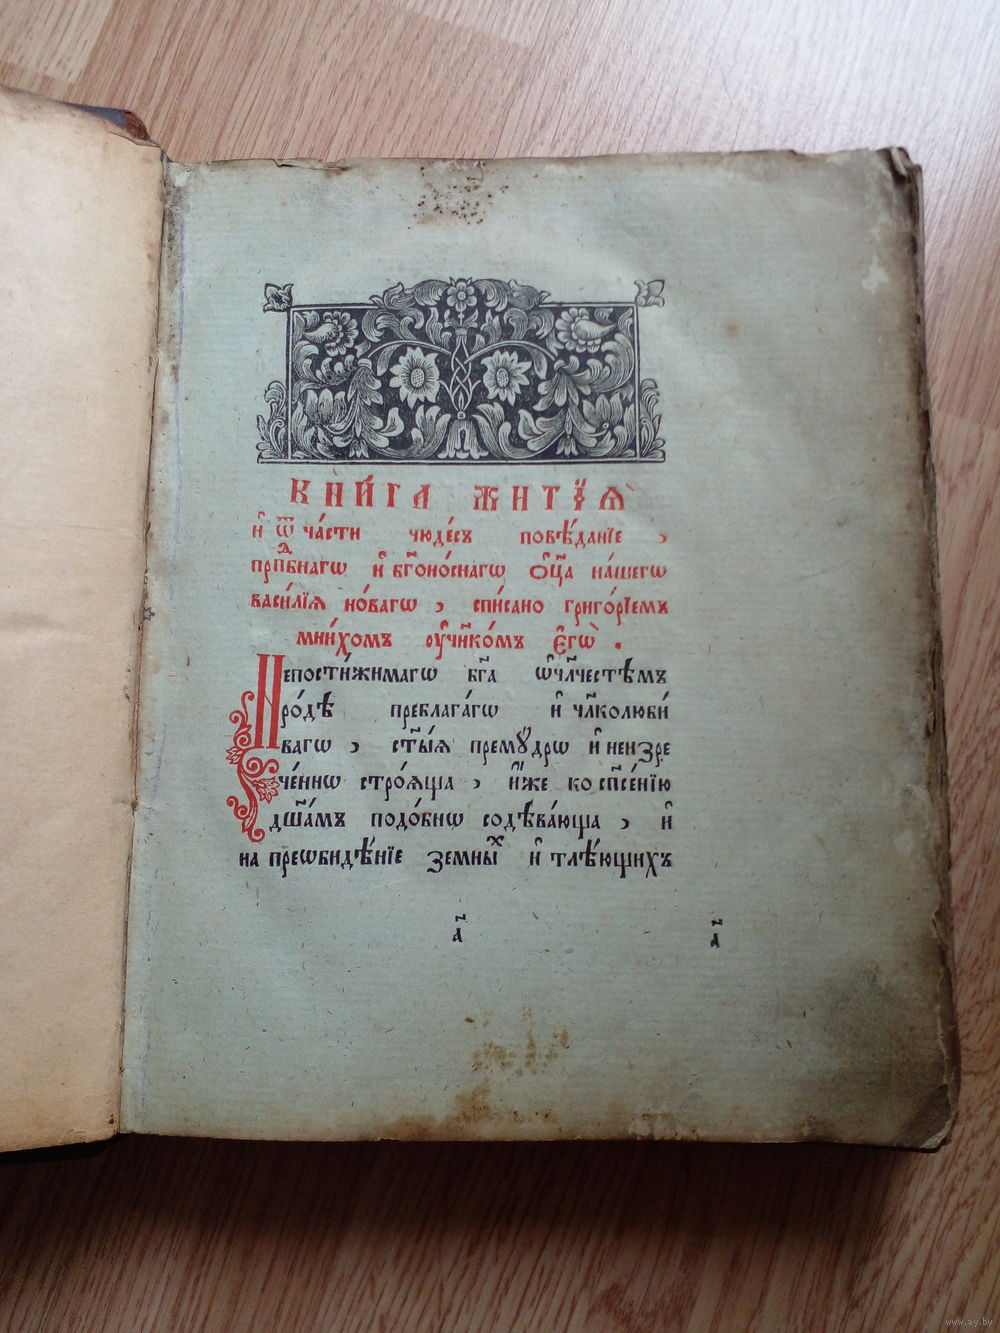 КНИ́ГА ЖИТїѦ̀
и҆ ѿ ча́сти чюде́съ повѣ́данїе,
прпⷣбнагѡ и҆ бг҃оно́снагѡ ѻ҆ц҃а на́шегѡ
васи́лїѧ но́вагѡ, спи́сано григо́рїемъ
мни́хомъ ᲂу҆чн҃ко́мъ є҆гѡ̀.
Непости́жимагѡ бг҃а ѡ҆ чл҃честѣмъ
ро́дѣ преблага́гѡ и҆ чл҃колюби́
вагѡ, ст҃ы́ѧ премꙋ́дрѡ и҆ неизре
че́ннѡ стро́ѧща, и҆́же ко сп҃се́нїю
дш҃а́мъ подо́бнѡ содѣва́юща, и҆
на преѡбидѣ́нїе земны́хъ и҆ тлѣ́ющихъ
а҃ а҃
www.ay.by